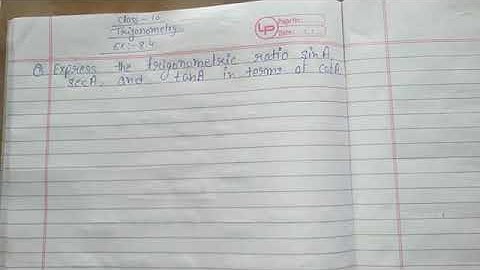 Class - 10
Trigonometry
Ex:- 8.4
LP
Page No.:
Date:
Q Express the trigonometric ratio sinA,
secA, and tanA in terms of cotA